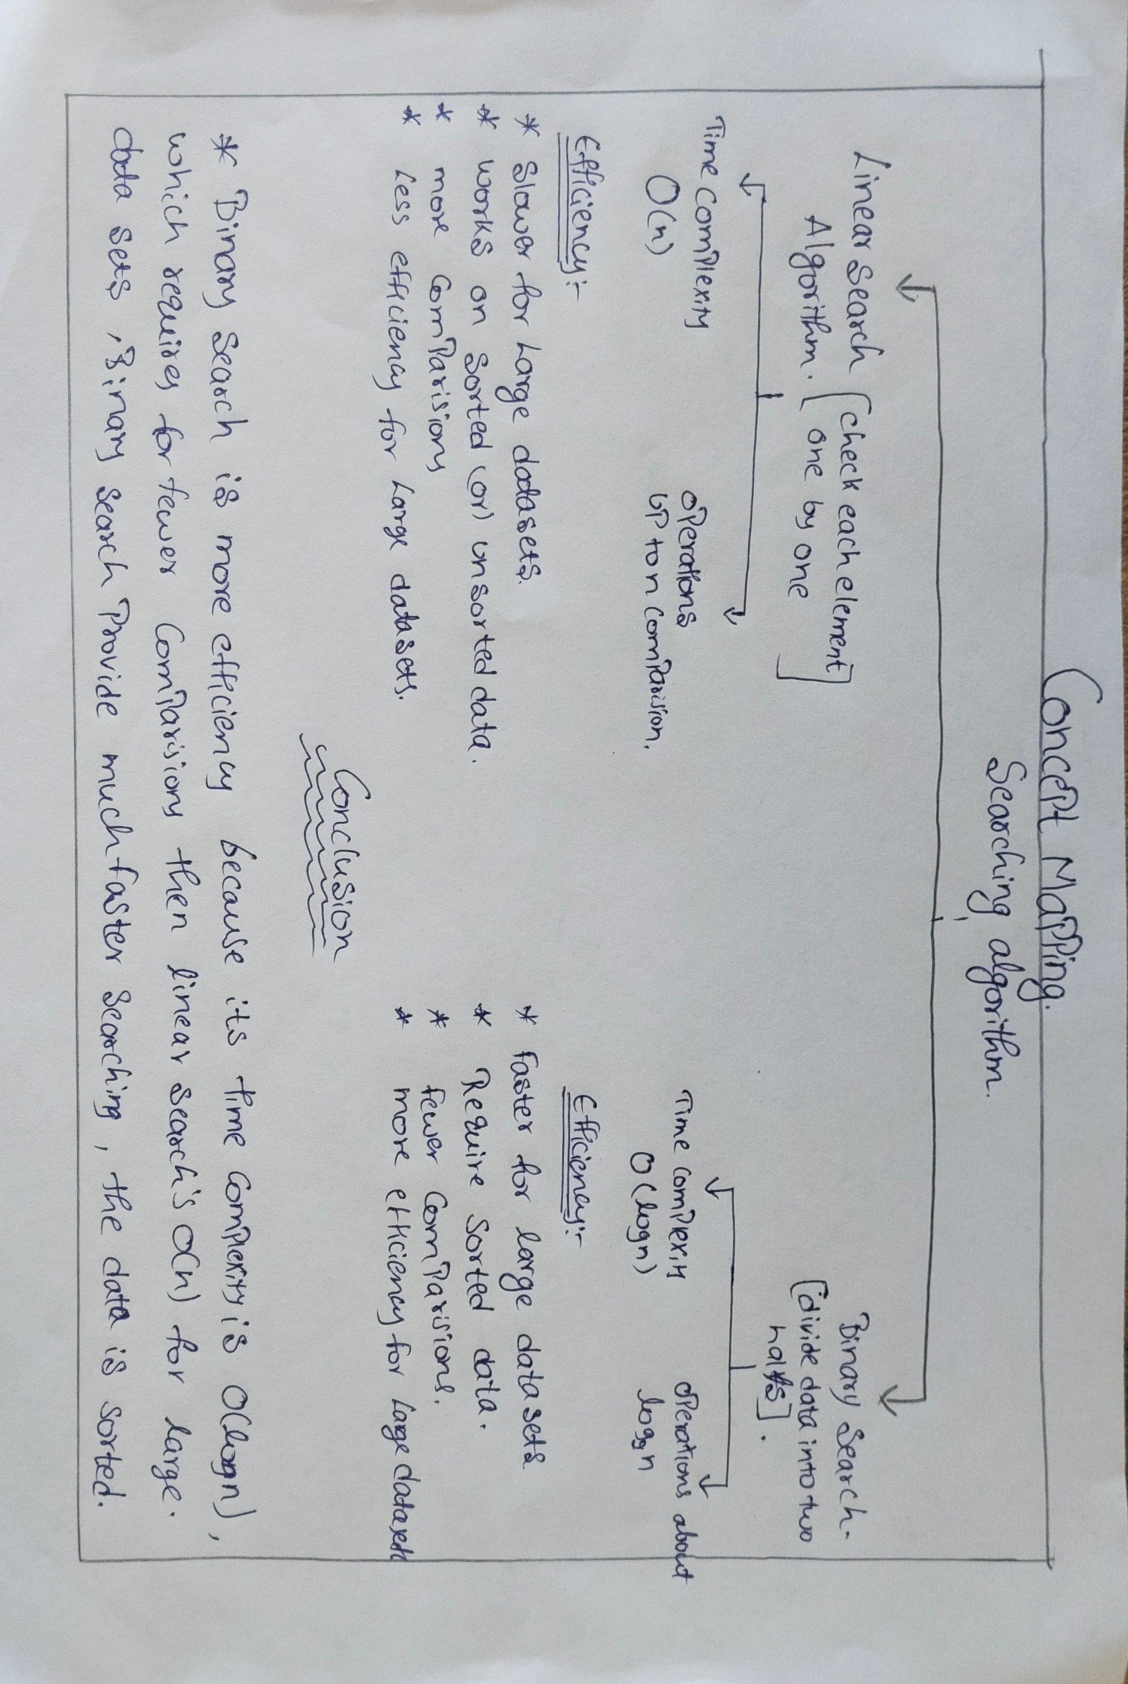 Concept Mapping.
Searching algorithm.
Linear Search [check each element
Algorithm. one by one]
Time complexity
O(n)
operations
UP to n comparision.
Efficiency:-
* Slower for Large datasets.
* works on sorted (or) unsorted data.
* more comparisions
* Less efficiency for Large datasets.
Binary Search.
[divide data into two
halfs].
Time complexity
O(logn)
operations about
log₂n
Efficiency:-
* faster for large datasets
* Require sorted data.
* fewer comparisions.
* more efficiency for Large datasets
Conclusion
* Binary Search is more efficiency because its time complexity is O(logn),
which requires for fewer comparisions then linear search's O(n) for large.
data sets, Binary search Provide much faster searching, the data is sorted.